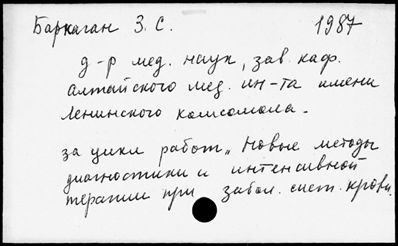 Баркаган З. С. 1987
д-р мед. наук, зав. каф.
Алтайского мед. ин-та имени
Ленинского комсомола.
за цикл работ „Новые методы
диагностики и интенсивной
терапии при забол. сист. крови.